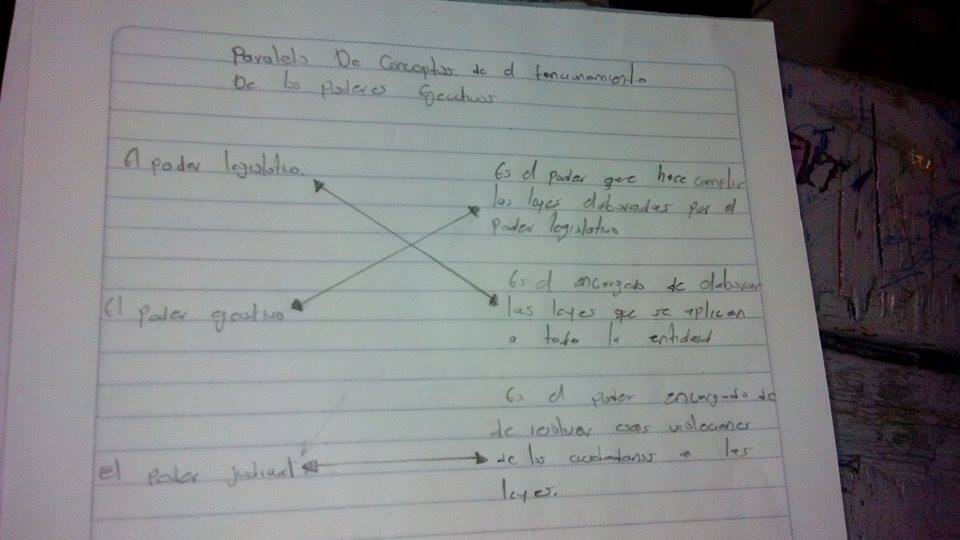 Paralelo De Conceptos de el funcunamiento
De los poderes Ejecutivos
El poder legislativo.
Es el poder que hace cumplir
las leyes elaboradas por el
poder legislativo
El poder ejecutivo
Es el encargado de elaborar
las leyes que se aplican
a toda la entidad
Es el poder encargado de
de resolver esas violaciones
de los ciudadanos a las
leyes.
el poder judicial